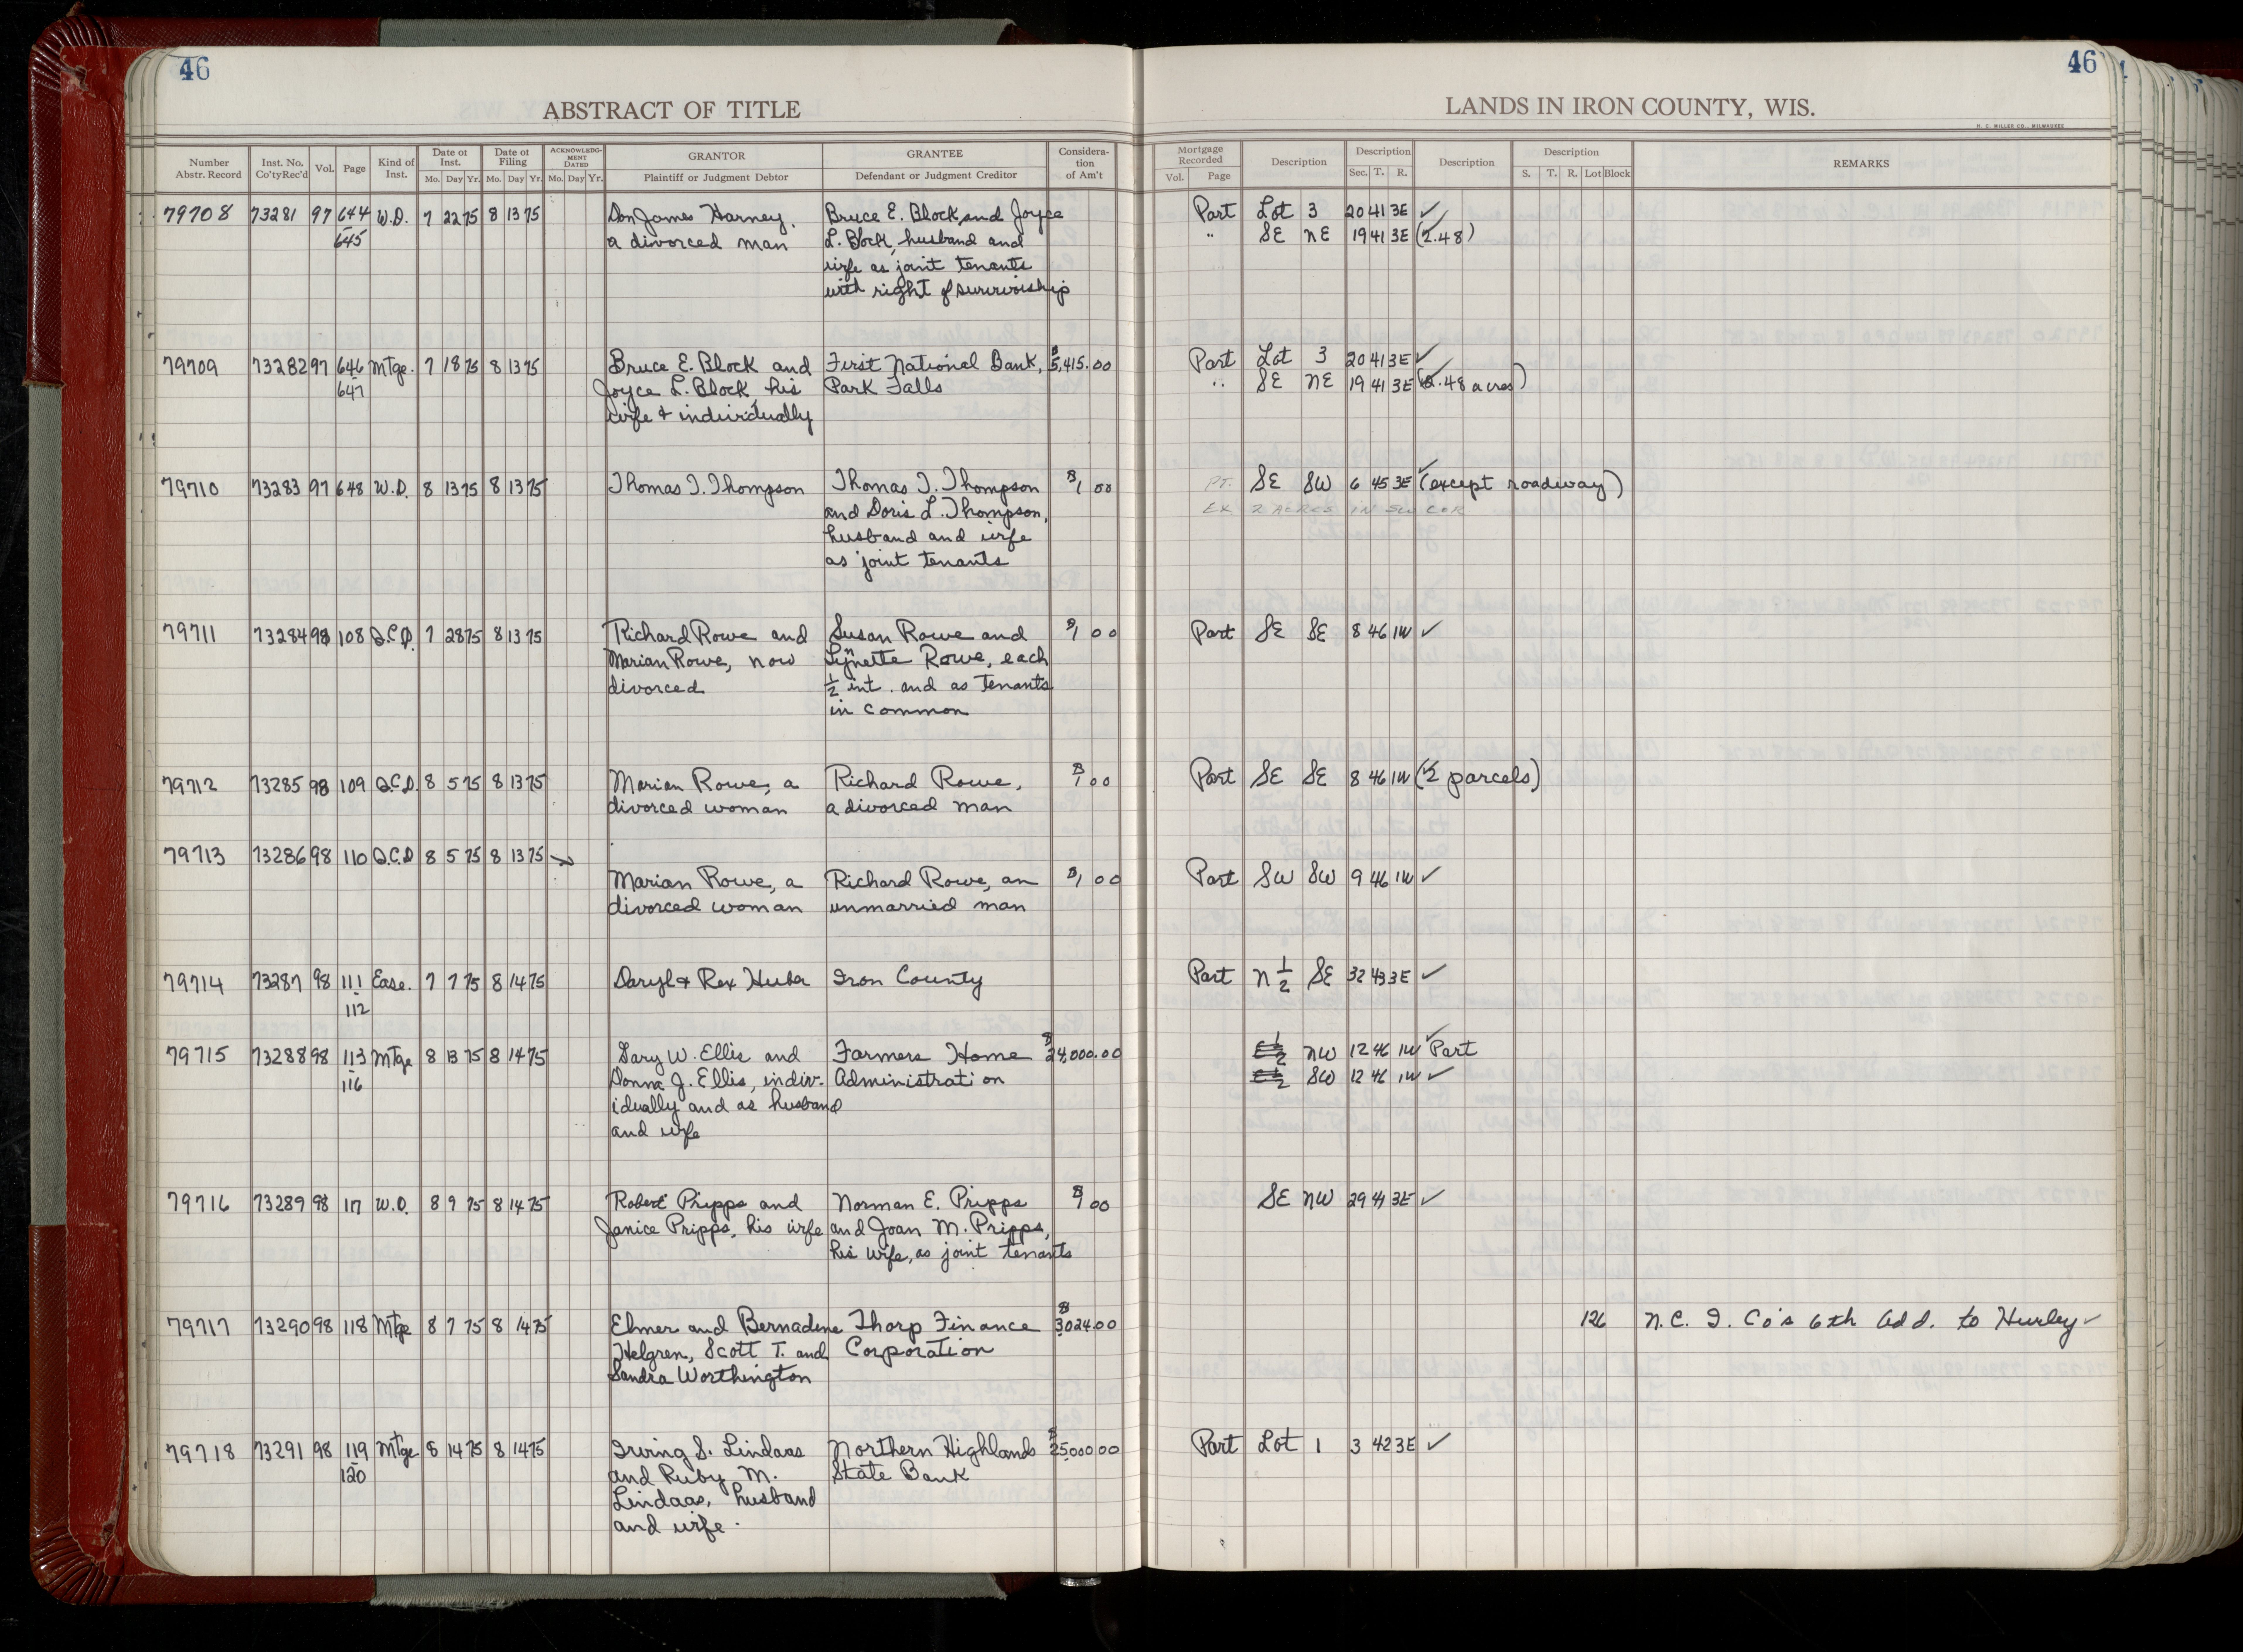 46
46
ABSTRACT OF TITLE
LANDS IN IRON COUNTY, WIS.
H. C. MILLER CO., MILWAUKEE
Number Abstr. Record | Inst. No. Co'ty Rec'd | Vol. | Page | Kind of Inst. | Date of Inst. Mo. Day Yr. | Date of Filing Mo. Day Yr. | ACKNOWLEDGMENT DATED Mo. Day Yr. | GRANTOR Plaintiff or Judgment Debtor | GRANTEE Defendant or Judgment Creditor | Consideration of Am't | Mortgage Recorded Vol. Page | Description | Description Sec. T. R. | Description | Description S. T. R. Lot Block | REMARKS
79708 73281 97 644 W.D. 7 22 75 8 13 75 Don James Harney, Bruce E. Block and Joyce Part Lot 3 20 41 3E ✓
645 a divorced man L. Block, husband and " SE NE 19 41 3E (2.48)
wife as joint tenants
with right of survivorship
79709 73282 97 646 Mtge. 7 18 75 8 13 75 Bruce E. Block and First National Bank, $5,415.00 Part Lot 3 20 41 3E ✓
647 Joyce L. Block his Park Falls " SE NE 19 41 3E (2.48 acres)
wife & individually
79710 73283 97 648 W.D. 8 13 75 8 13 75 Thomas T. Thompson Thomas T. Thompson $1 00 PT. SE SW 6 45 3E ✓ (except roadway)
and Doris L. Thompson, EX 2 ACRES IN SW COR
husband and wife
as joint tenants
79711 73284 98 108 Q.C.D. 7 28 75 8 13 75 Richard Rowe and Susan Rowe and $1 00 Part SE SE 8 46 1W ✓
Marian Rowe, now Lynnette Rowe, each
divorced 1/2 int. and as tenants
in common
79712 73285 98 109 Q.C.D. 8 5 75 8 13 75 Marian Rowe, a Richard Rowe, $1 00 Part SE SE 8 46 1W ✓ (2 parcels)
divorced woman a divorced man
79713 73286 98 110 Q.C.D 8 5 75 8 13 75
Marian Rowe, a Richard Rowe, an $1 00 Part SW SW 9 46 1W ✓
divorced woman unmarried man
79714 73287 98 111 Ease. 7 7 75 8 14 75 Daryl & Rex Huber Iron County Part N 1/2 SE 32 43 3E ✓
112
79715 73288 98 113 Mtge 8 13 75 8 14 75 Gary W. Ellis and Farmers Home $24,000.00 E 1/2 NW 12 46 1W ✓ Part
116 Donna J. Ellis, indiv- Administration E 1/2 SW 12 46 1W ✓
idually and as husband
and wife
79716 73289 98 117 W.D. 8 9 75 8 14 75 Robert Pripps and Norman E. Pripps $1 00 SE NW 29 3E ✓
Janice Pripps, his wife and Joan M. Pripps,
his wife, as joint tenants
79717 73290 98 118 Mtge 8 7 75 8 14 75 Elmer and Bernadine Thorp Finance $3024.00 126 N.C. I. Co's 6th Add. to Hurley ✓
Helgren, Scott T. and Corporation
Sandra Worthington
79718 73291 98 119 Mtge 8 14 75 8 14 75 Irving S. Lindaas Northern Highlands $25,000.00 Part Lot 1 3 42 3E ✓
120 and Ruby M. State Bank
Lindaas, husband
and wife.